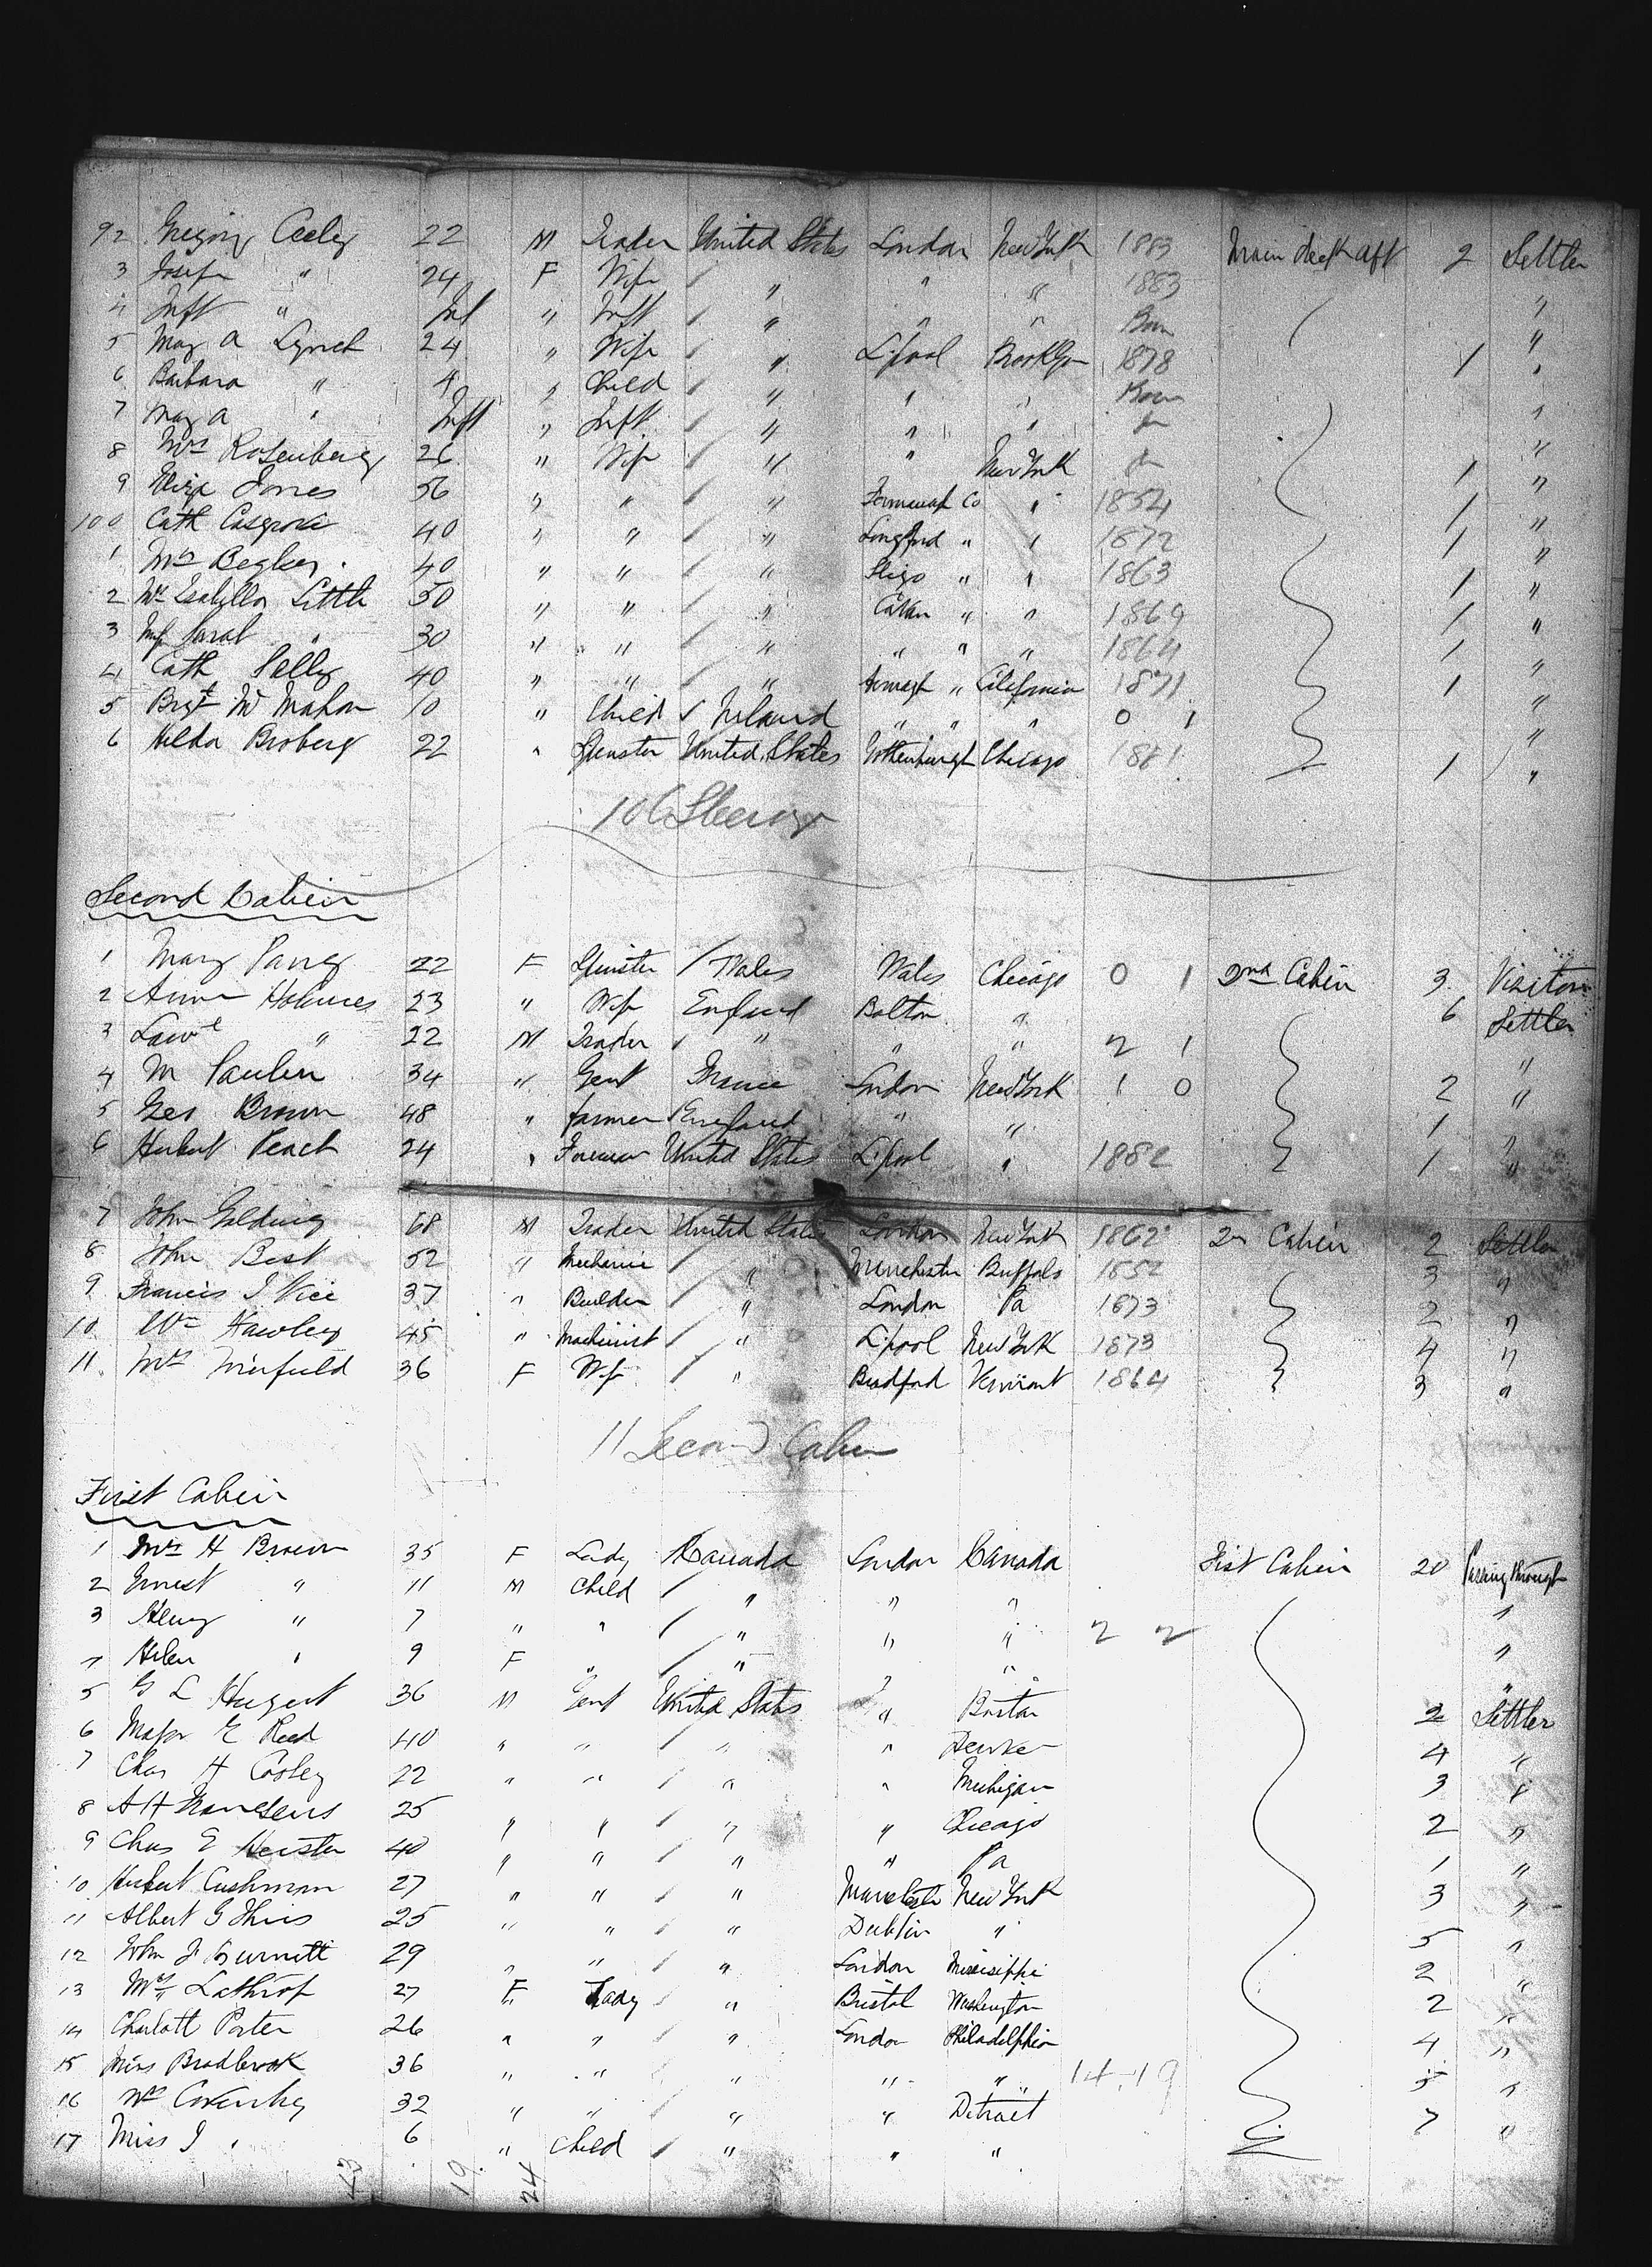 92 Gregory Ceeley 22 M Trader United States London New York 1883 Main deck aft 2 Settler
3 Josefa " 24 F Wife " " " 1883 "
4 Inft " Inf " Inft " " " Born "
5 Mary A Lynch 24 " Wife " L'pool Brooklyn 1878 1 "
6 Barbara " 4 " Child " " " Born "
7 Mary A " Inft " Inft " " " "
8 Mrs Rosenberg 26 " Wife " " New York 1 "
9 Eliza Jones 56 " " " Fermanagh Co " 1854 1 "
100 Cath Cosgrove 40 " " " Longford " " 1872 1 "
1 Mrs Begley 40 " " " Sligo " " 1863 1 "
2 Mrs Isabella Little 50 " " " Cavan " " 1869 1 "
3 Sarah " 30 " " " " " " 1864 1 "
4 Cath 40 " " " Armagh " California 1871 1 "
5 Brgt McMahon 10 " Child Ireland " " " 0 1 "
6 Hilda Broberg 22 " Spinster United States Gothenburgh Chicago 1881 1 "
106 Steerage
Second Cabin
1 Mary Parry 22 F Spinster Wales Wales Chicago 0 1 2nd Cabin 3 Visitor
2 Annie Holmes 23 " Wife England Bolton " 6 Settler
3 Sawl " 22 M Trader " " " 2 1 "
4 M Paulen 34 " Gent France London New York 1 0 2 "
5 Geo Brown 48 " farmer England " " 1 "
6 Herbert Peach 24 " Foreman United States L'pool " 1882 1 "
7 John Golding 68 M Trader United States London New York 1862 2nd Cabin 2 Settler
8 John Best 52 " Mechanic " Manchester Buffalo 1852 3 "
9 Francis J Vice 37 " Builder " London Pa 1873 2 "
10 Wm Hawley 45 " Machinist " L'pool New York 1873 4 "
11 Mrs Winfield 36 F Wife " Bradford Vermont 1864 3 "
11 Second Cabin
First Cabin
1 Mrs H Brown 35 F Lady Canada London Canada Fist Cabin 20 Passing through
2 Ernest " 11 M Child " " " "
3 Henry " 7 " " " " " 2 2 "
4 Helen " 9 F " " " " "
5 G L 36 M Gent United States " Boston 2 Settler
6 Major E Reed 40 " " " " Denver 4 "
7 Chas H Cosley 22 " " " " Michigan 3 "
8 A H 25 " " " " Chicago 2 "
9 Chas E 40 " " " " Pa 1 "
10 Herbert Cushman 27 " " " Manchester New York 3 "
11 Albert G 25 " " " Dublin " 5 "
12 John J Burnett 29 " " " London Mississippi 2 "
13 Mrs Lathrop 27 F Lady " Bristol Washington 2 "
14 Charlott Porter 26 " " " London Philadelphia 4 "
15 Miss Bradbrook 36 " " " " " 14.19 5 "
16 Mrs 32 " " " " Detroit 7 "
17 Miss J " 6 " Child " " "
43 19 24